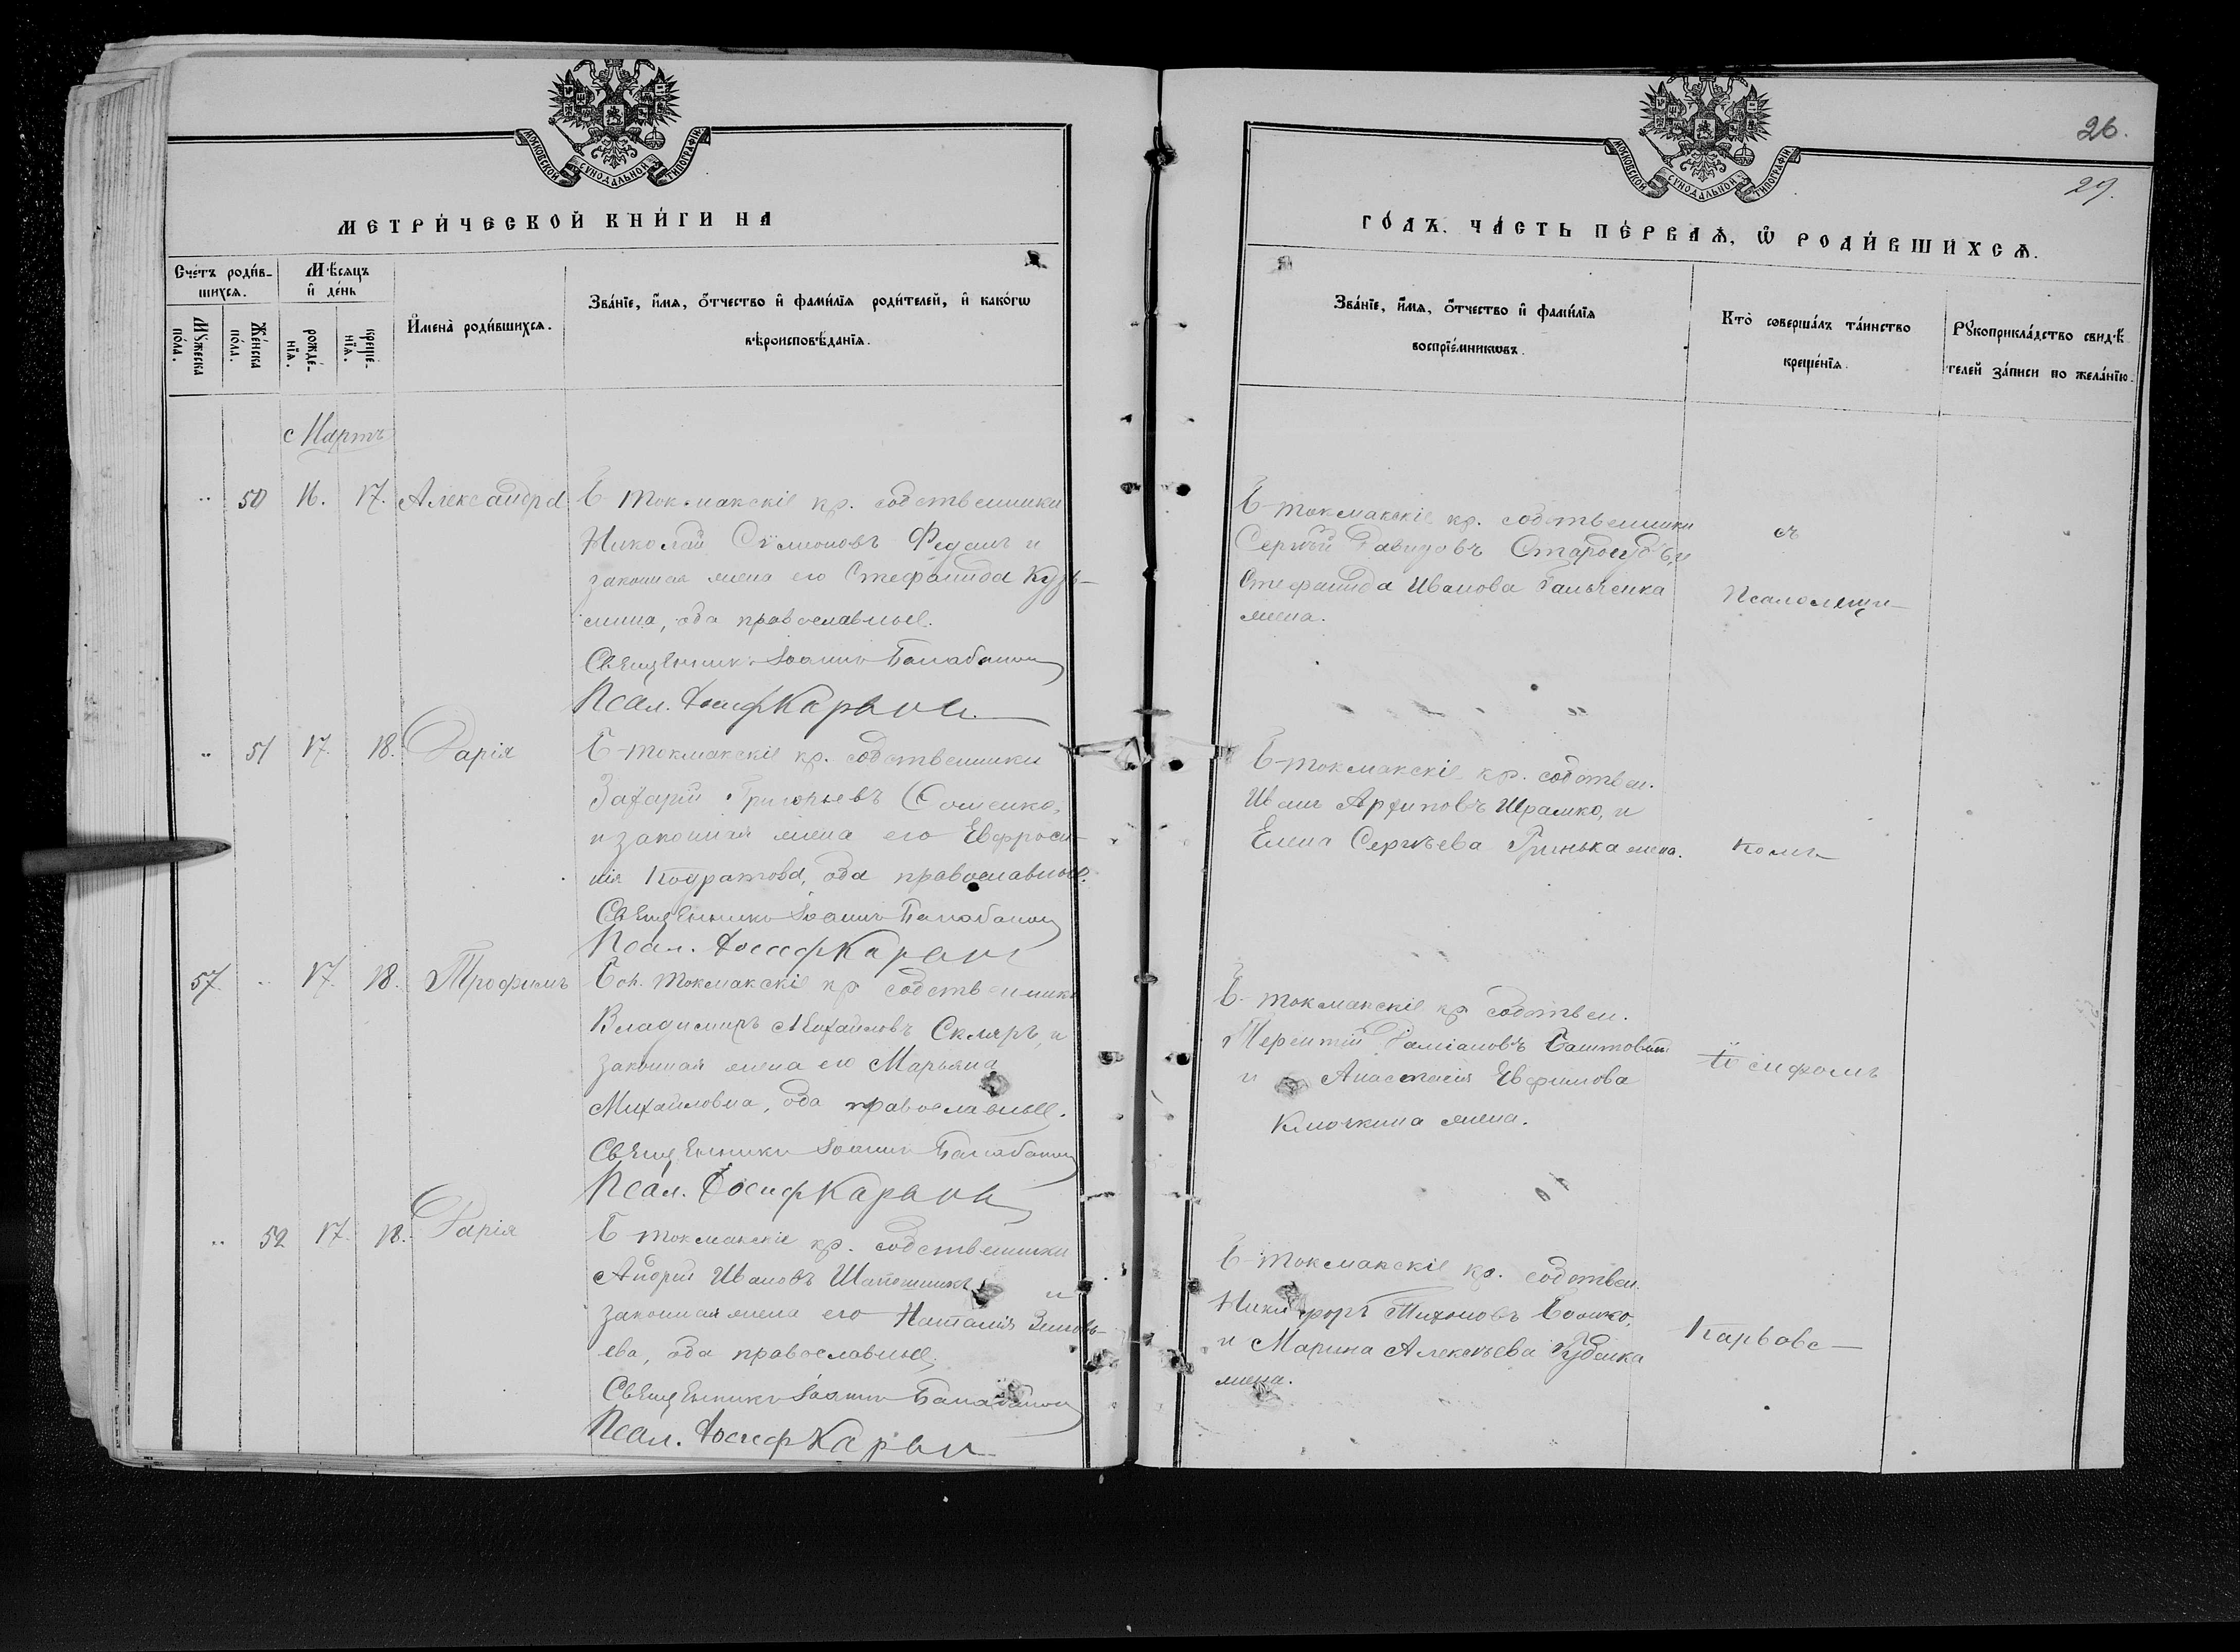 МОСКОВСКОЙ СУНОДАЛЬНОЙ ТИПОГРАФІИ
МЕТРИ́ЧЕСКОЙ КНИ́ГИ НА
Сче́тъ роди́в-
шихся.
Мꙋжеска
по́ла.
Же́нска
по́ла.
Мѣ́сяцъ
и҆ де́нь
рожде́-
нїя.
креще́-
нїя.
И҆мена̀ роди́вшихся.
Зва́нїе, и҆́мя, ѻ҆́тчество и҆ фами́лїя роди́телей, и҆ како́гѡ
вѣроисповѣ́данїя.
Мартъ
.. 50 16. 17. Александра
Б Токмакскіе кр. собственники
Николай Сѵмеоновъ Федан и
законная жена его Стефанида Кузь-
мина, оба православные.
Священникъ Іоаннъ Балабанов
Псал. Іосиф Карвов
.. 51 17. 18. Дарія
Б-токмакскіе кр. собственники
Захарій Григорьевъ
и законная жена его Евфроси-
нія Кодратова, оба православные.
Священникъ Іоаннъ Балабанов
Псал. Іосиф Карвов
57. .. 17. 18. Трофимъ
Бол. Токмакскіе кр собственники
Владимиръ Михайловъ Скляръ, и
законная жена его Марьяна
Михайловна, оба православные.
Священникъ Іоаннъ Балабанов
Псал. Іосиф Карвов
.. 52 17. 18. Дарія
Б Токмакскіе кр. собственники
Андрей Ивановъ Шапошник и
законная жена его Наталія Зиновь-
ева, оба православные.
Священникъ Іоаннъ Балабанов
Псал. Іосиф Карвов
26.
27.
МОСКОВСКОЙ СУНОДАЛЬНОЙ ТИПОГРАФІИ
ГО́ДЪ. ЧА́СТЬ ПЕ́РВАѦ, Ѡ҆ РОДИ́ВШИХСѦ.
Зва́нїе, и҆́мя, ѻ҆́тчество и҆ фами́лїя
воспрїе́мникѡвъ.
Кто̀ соверша́лъ та́инство
креще́нїя.
Рꙋкоприкла́дство свидѣ́-
телей за́писи по жела́нїю.
Б-токмакскіе кр. собственники
Сергѣй Давидовъ Стародубъ, и
Стефанида Иванова Гальченка
жена.
съ
Псаломщи-
Б-токмакскіе кр. собствен.
Иван Архиповъ Шрамко, и
Елена Сергѣева Гринька жена.
комъ
Б-Токмакскіе кр собствен.
Терентій Даміановъ Баштовый
и Анастасія Евфимова
Клочкина жена.
Іосифомъ
Б-Токмакскіе кр. собствен.
Никифоръ Тихоновъ Бошко,
и Марина Алексѣева Губенка
жена.
Карвов-